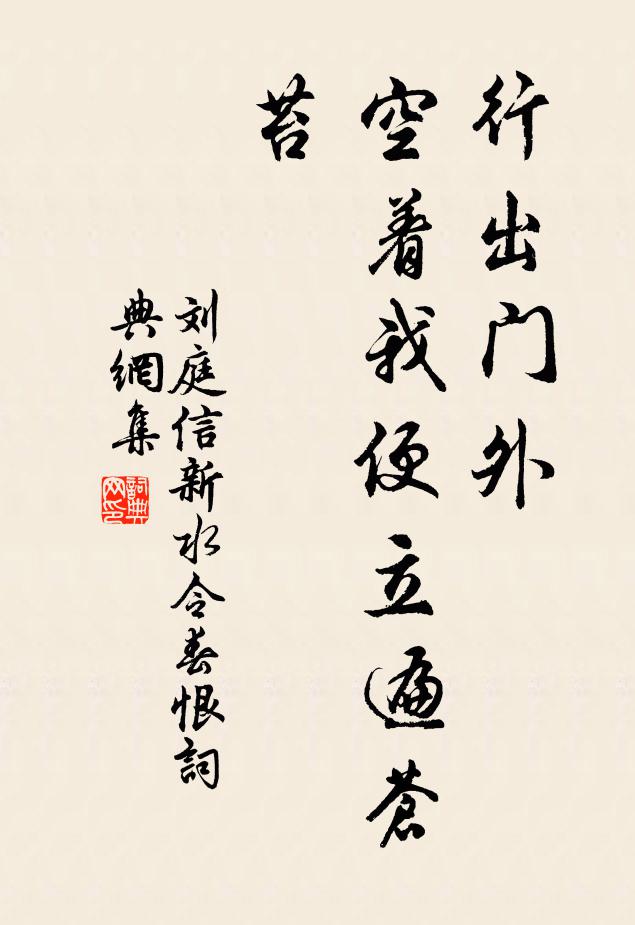 行出門外
空着我便立遍蒼
苔
刘庭信新水令春恨詞
典網集
詞典
网印